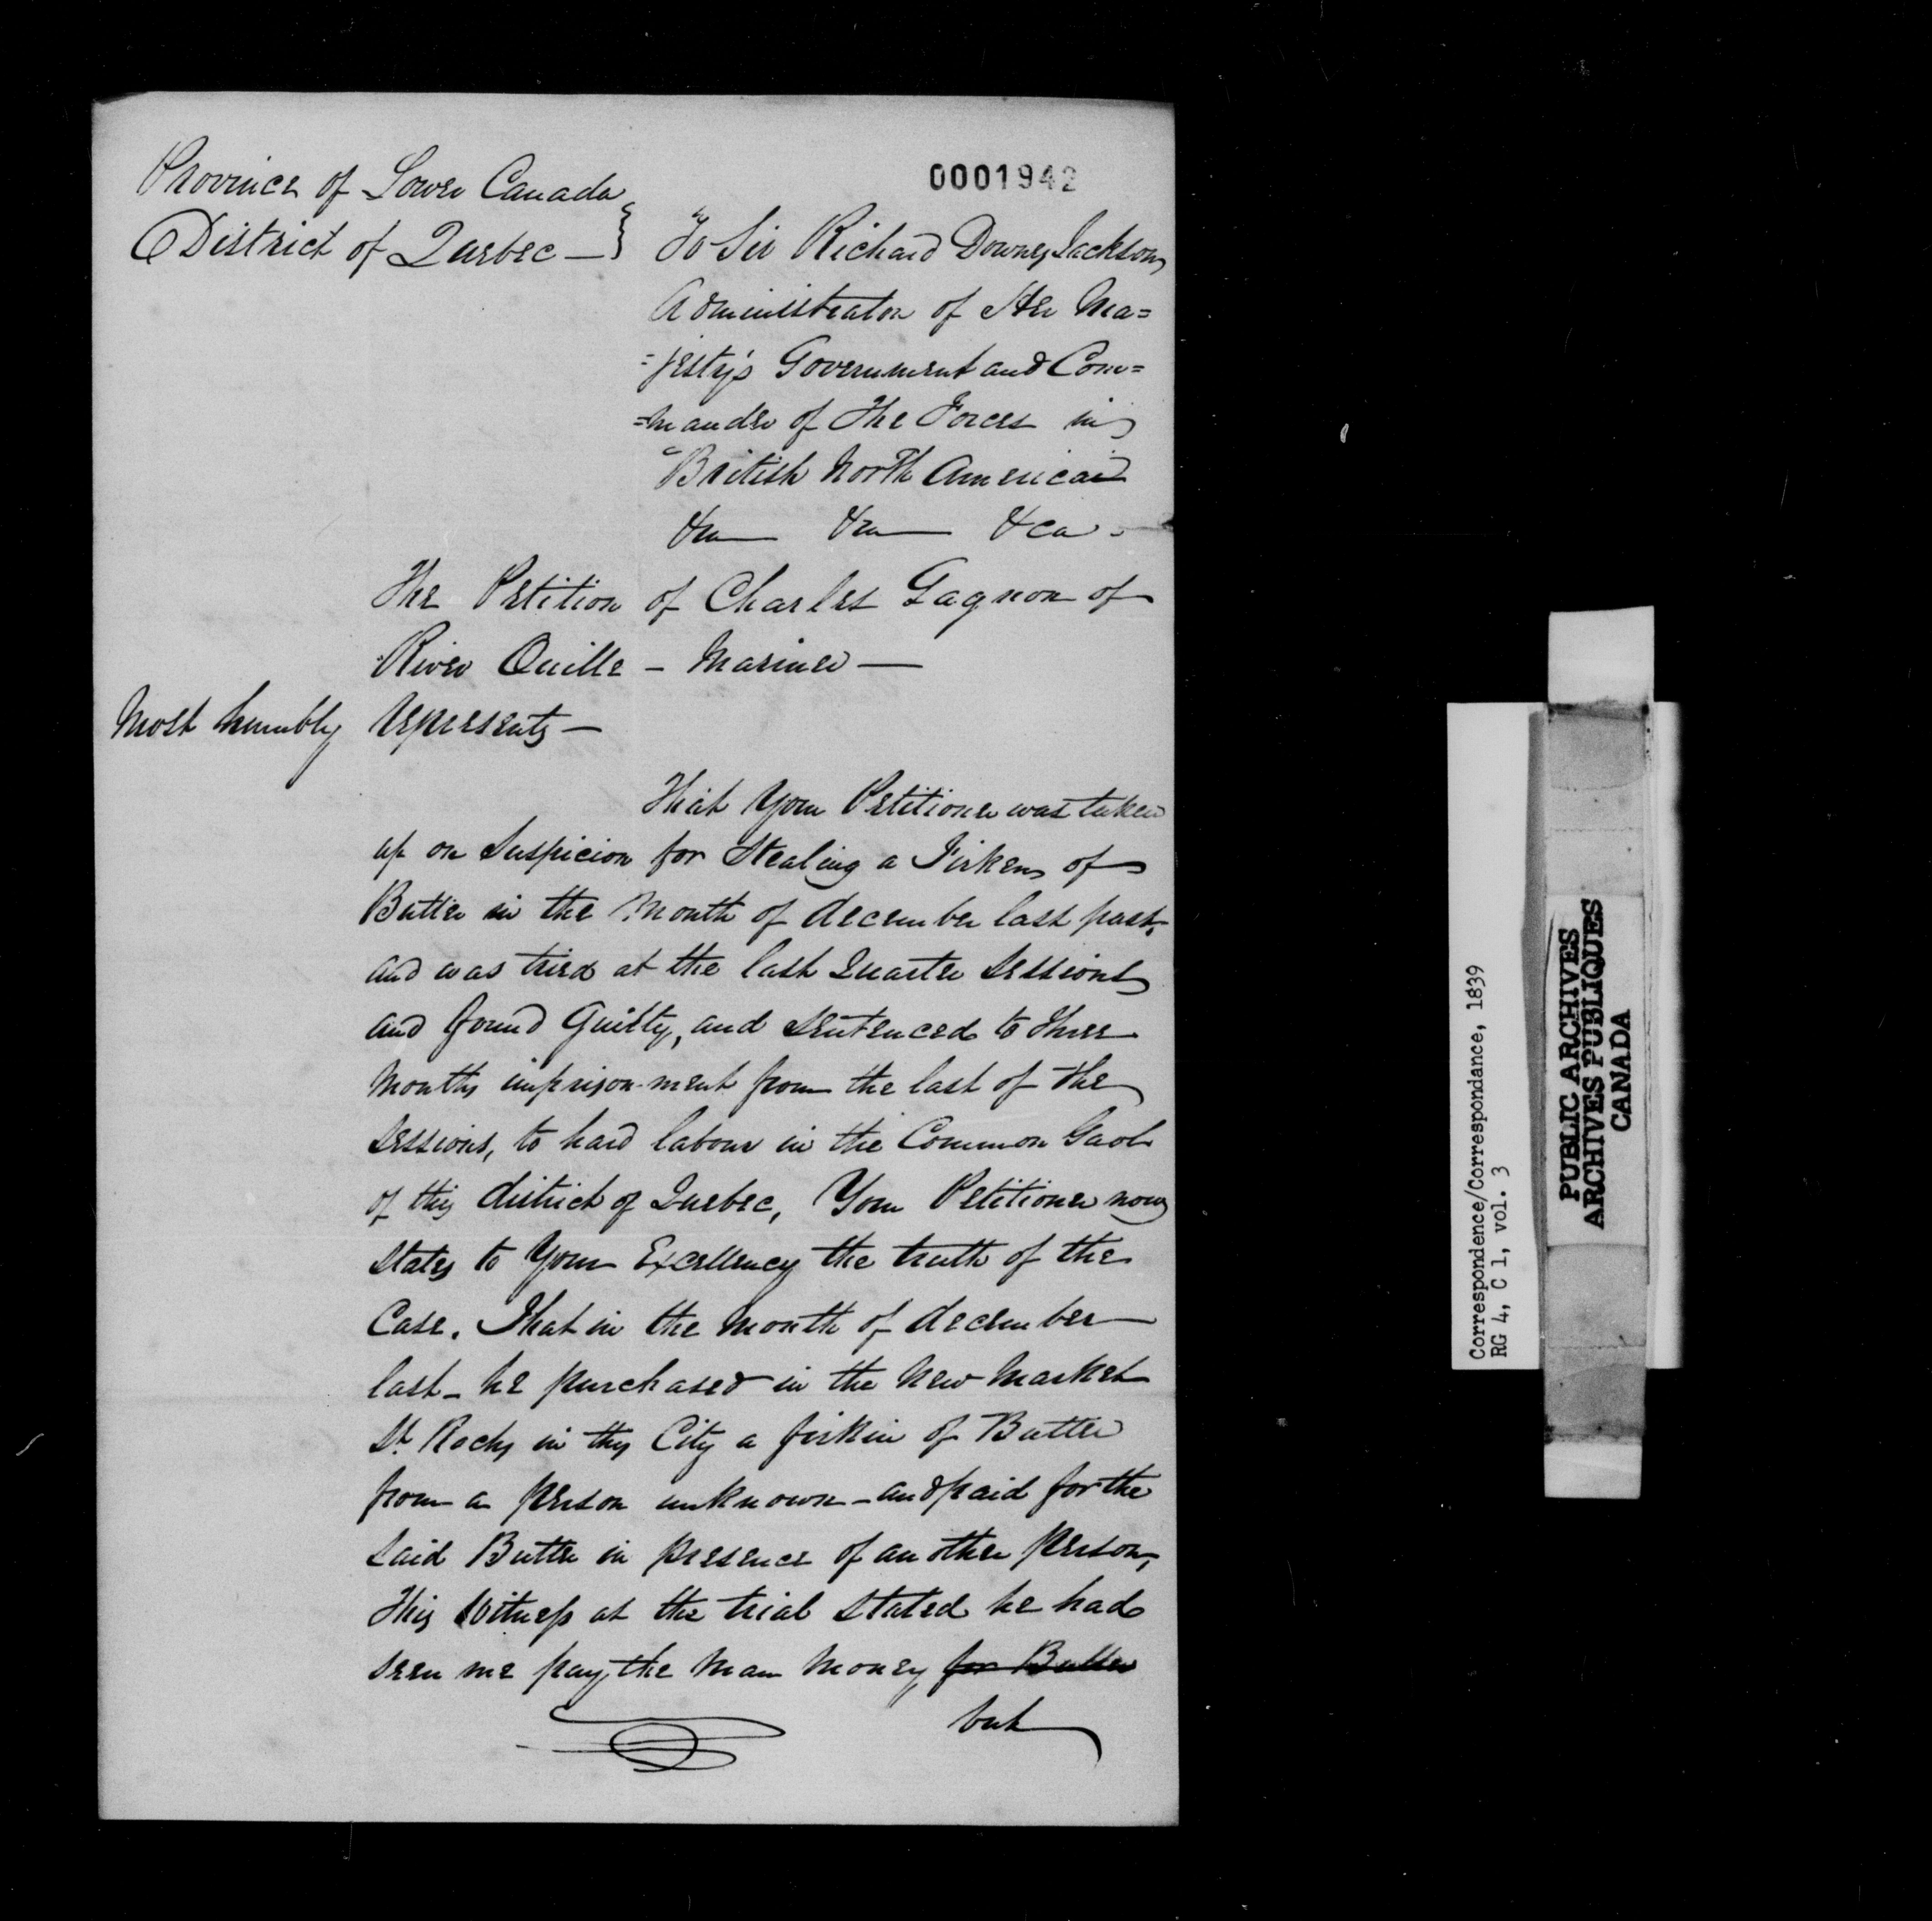 0001942
Province of Lower Canada
District of Quebec —
To Sir Richard Downes Jackson
Administrator of Her Ma=
=jesty's Government and Com=
=mander of the Forces in
British North America
&ca &ca &ca
The Petition of Charles Gagnon of
River Ouille — Mariner —
Most humbly represents —
That Your Petitioner was taken
up on Suspicion for Stealing a Firken of
Butter in the Month of december last past,
and was tried at the last Quarter Sessions
and found Guilty, and Sentenced to three
Months imprison-ment from the last of the
Sessions, to hard labour in the Common Gaol
of this district of Quebec, Your Petitioner now
States to Your Excellency the truth of the
Case. That in the Month of december
last — he purchased in the New Market
St. Rochs in this City a firkin of Butter
from a person unknown — and paid for the
Said Butter in presence of another person,
This Witness at the trial Stated he had
seen me pay the Man Money for Butter
but
Correspondence/Correspondance, 1839
RG 4, C 1, vol. 3
PUBLIC ARCHIVES
ARCHIVES PUBLIQUES
CANADA